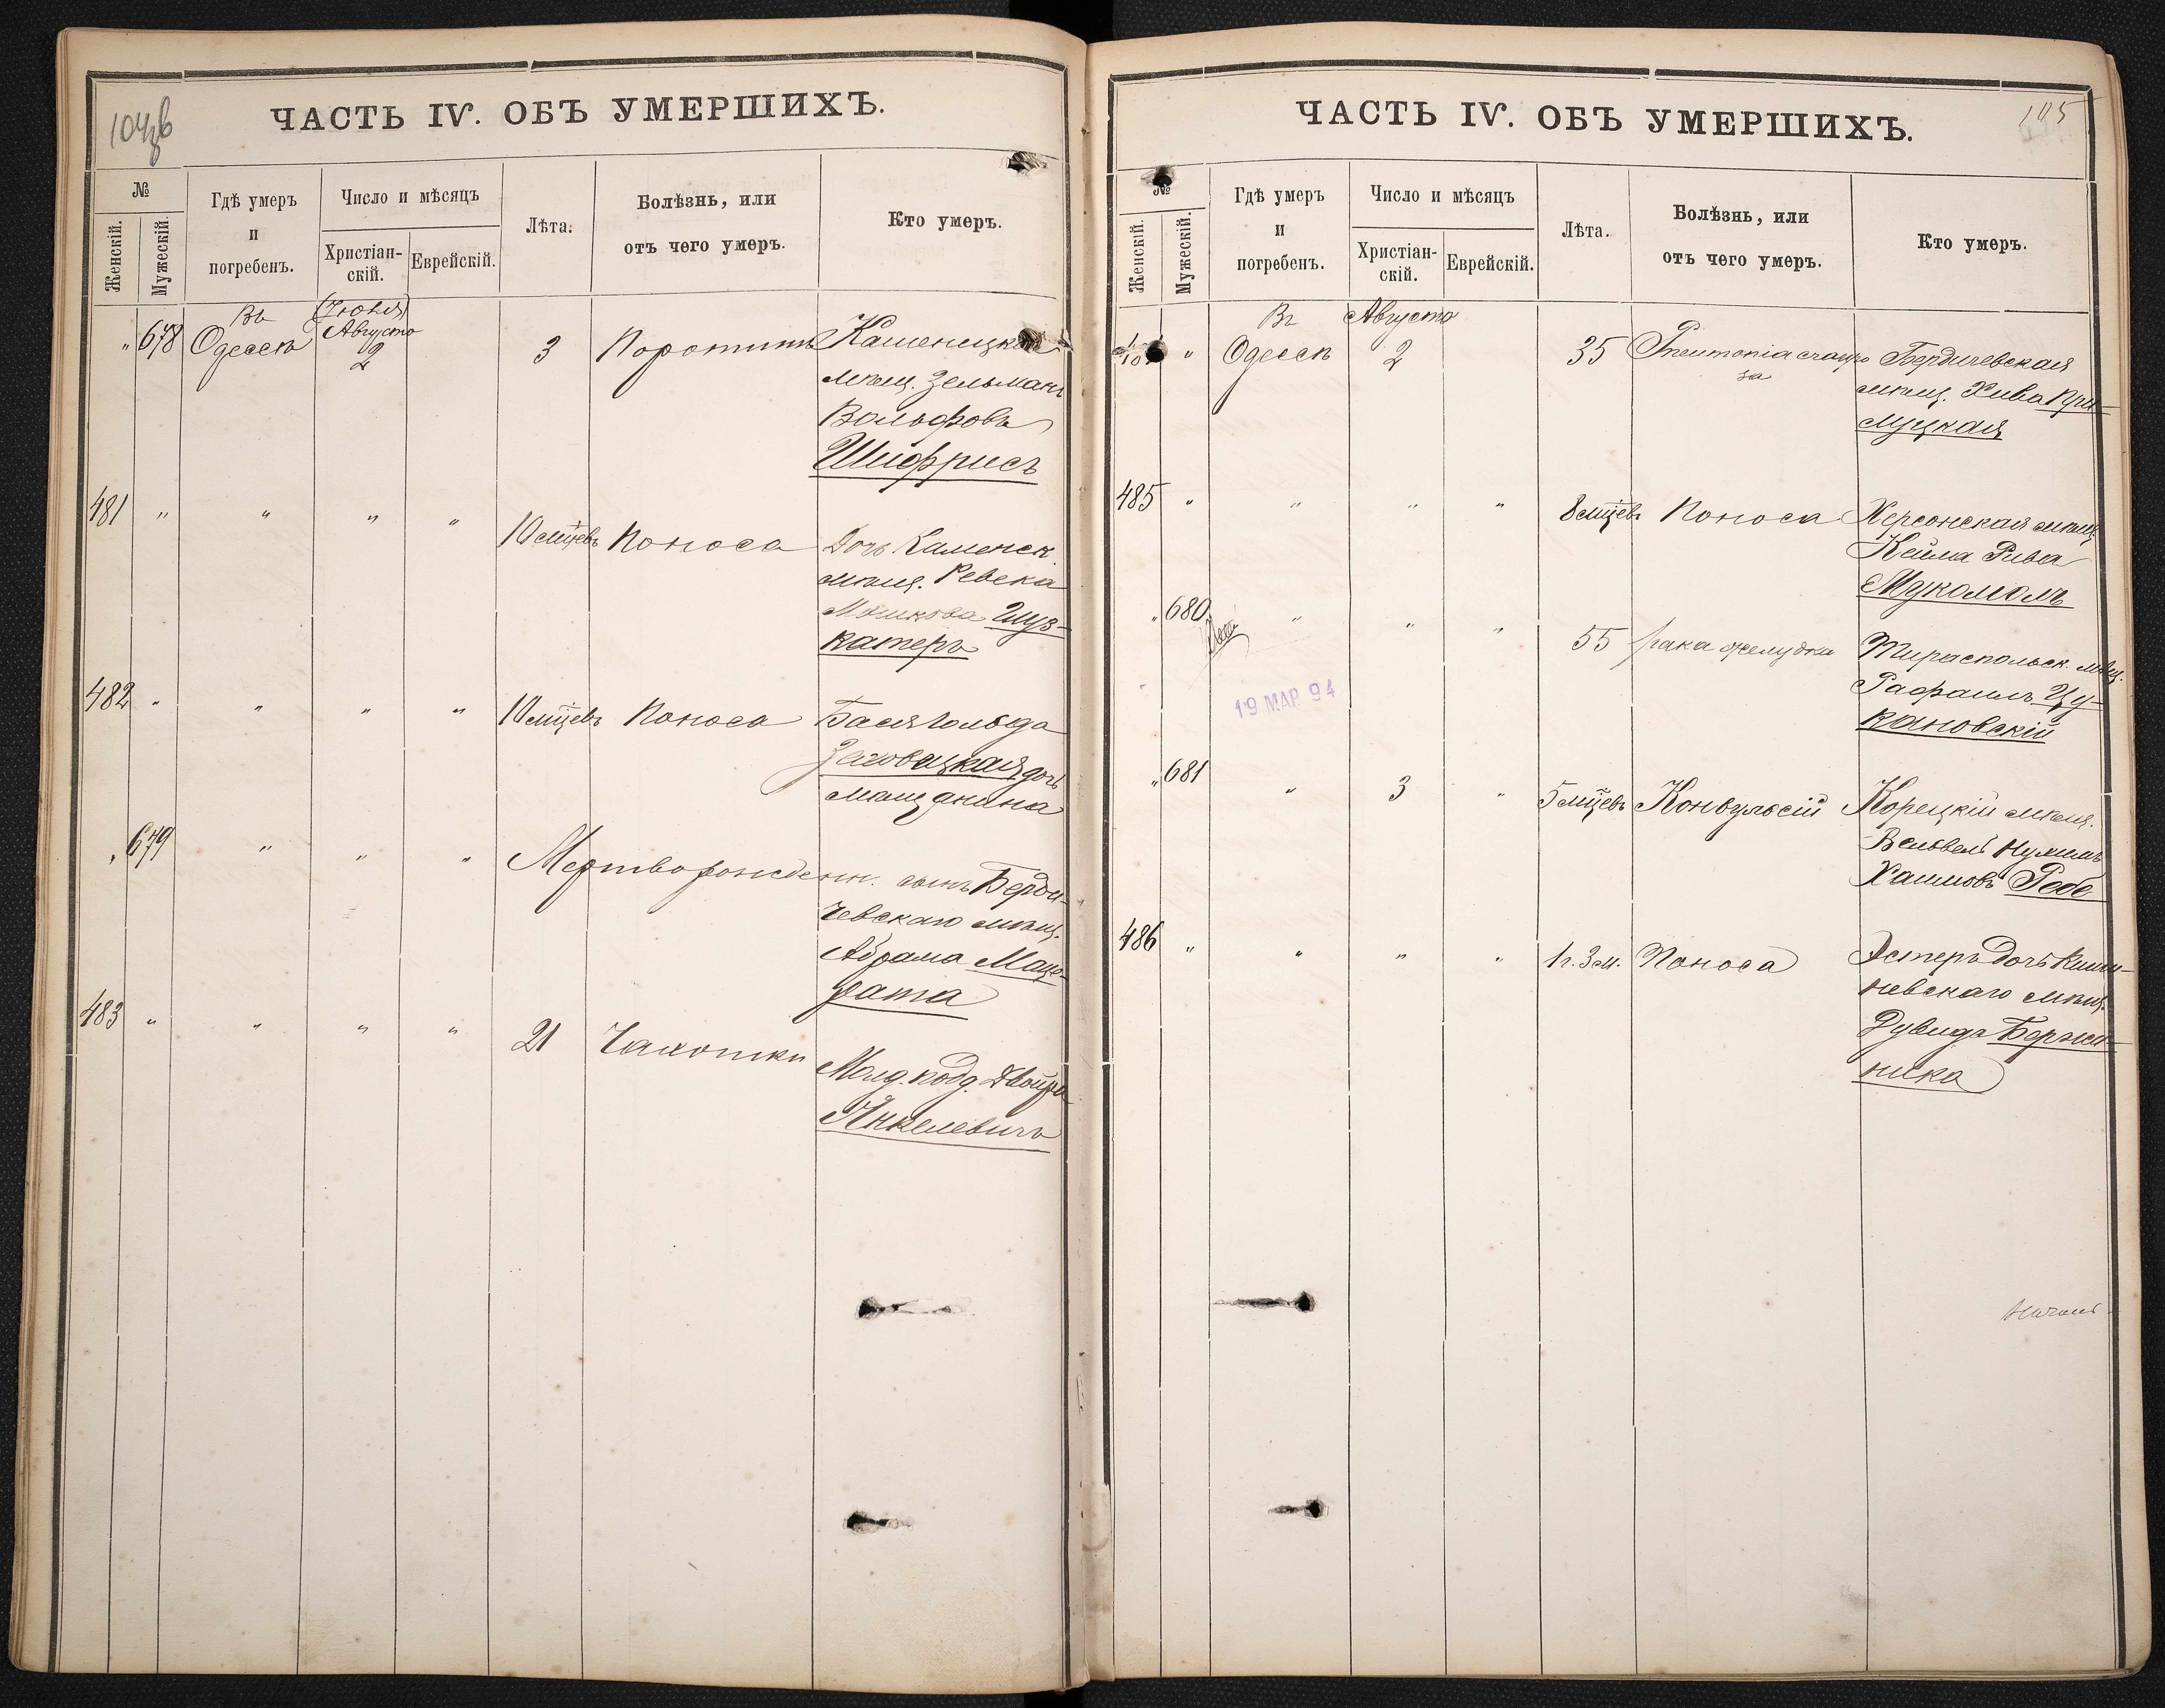 104об
ЧАСТЬ IV. ОБЪ УМЕРШИХЪ.
№
Женскій.
Мужескій.
Гдѣ умеръ
и
погребенъ.
Число и мѣсяцъ
Христіан-
скій.
Еврейскій.
Лѣта.
Болѣзнь, или
отъ чего умеръ.
Кто умеръ.
" 678 Въ Одессѣ
Августа
2
3
Каменецкій
мѣщ. Зельманъ
Вольфовъ
Шифрисъ
481 " " " " 10 мѣцевъ Поноса Дочь Каменск.
мѣщ. Ревека
Мошкова Шуз-
катеръ
482 " " " " 10 мѣцевъ Поноса Бася Гольда
дочь
мѣщанина
" 679 " " " Мертворожденн. сынъ Берди-
чевскаго мѣщ.
Абрама
483 " " " " 21 Чахотки
Молд. подд. Двойра
Янкелевичъ
105
ЧАСТЬ IV. ОБЪ УМЕРШИХЪ.
№
Женскій.
Мужескій.
Гдѣ умеръ
и
погребенъ.
Число и мѣсяцъ
Христіан-
скій.
Еврейскій.
Лѣта.
Болѣзнь, или
отъ чего умеръ.
Кто умеръ.
" Въ Одессѣ
Августа
2
35 Pneumonia
Бердичевская
мѣщ. Хива При-
луцкая
485 " " " " 8 мѣцевъ Поноса Херсонская мѣщ.
Кейла Рива
Мукомолъ
" 680 " " " 55 рака желудка Тираспольск. мѣщ.
Рафаилъ Цу-
кановскій
19 МАР. 94
" 681 " 3 " 5 мѣцевъ Конвульсій Корецкій мѣщ.
Вельвель Нухимъ
Хаимовъ Ребе
486 " " " " 1 г. 3 м. Поноса Эстеръ дочь Киши-
невскаго мѣщ.
Дувидъ Бержи-
ника